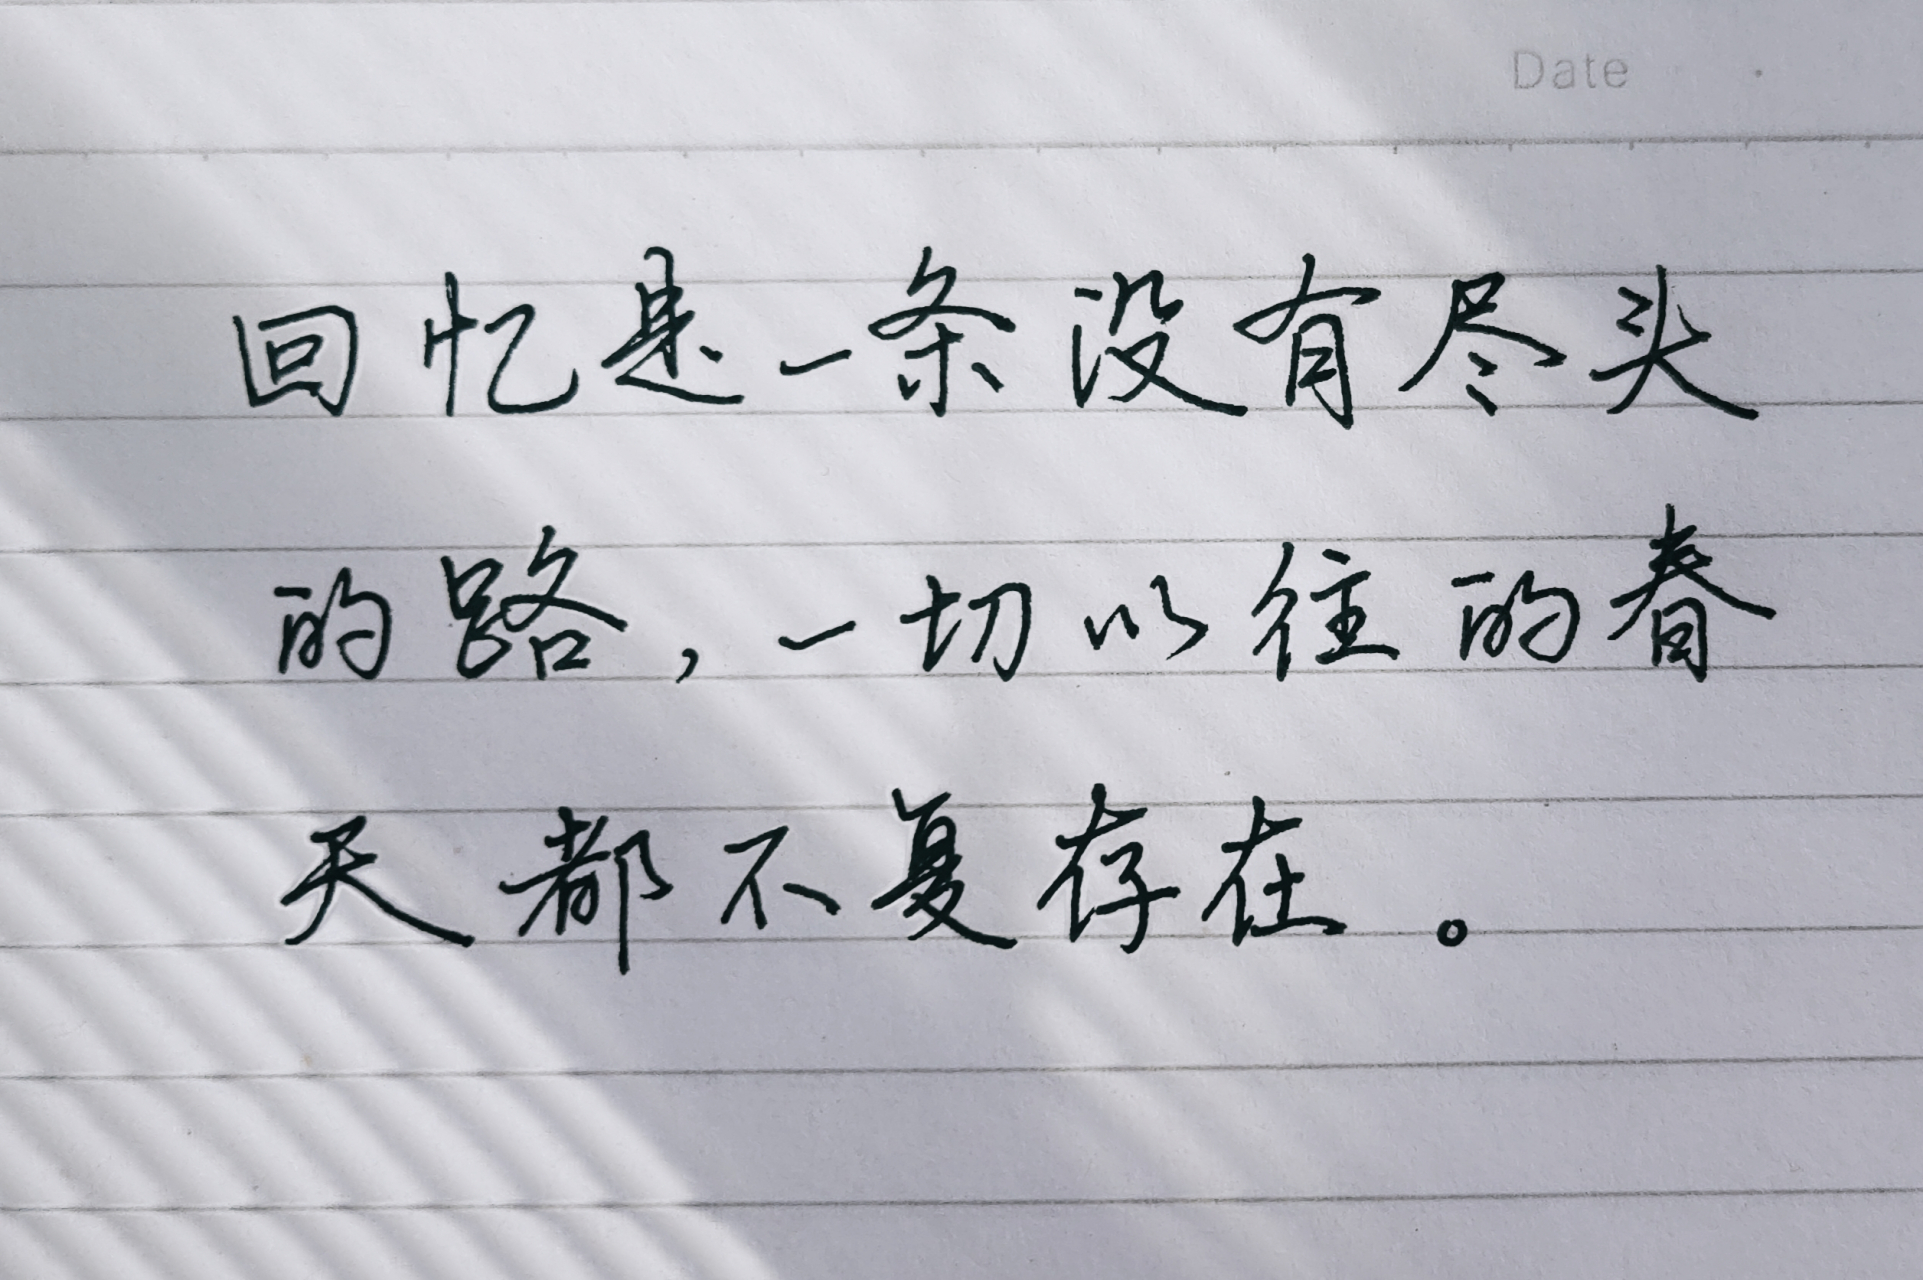 Date
回忆是一条没有尽头
的路，一切以往的春
天都不复存在。